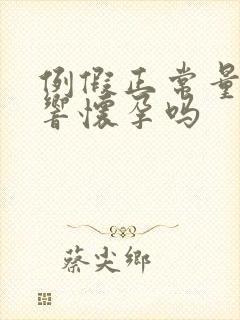 例假正常量
响怀孕吗
蔡尖鄉